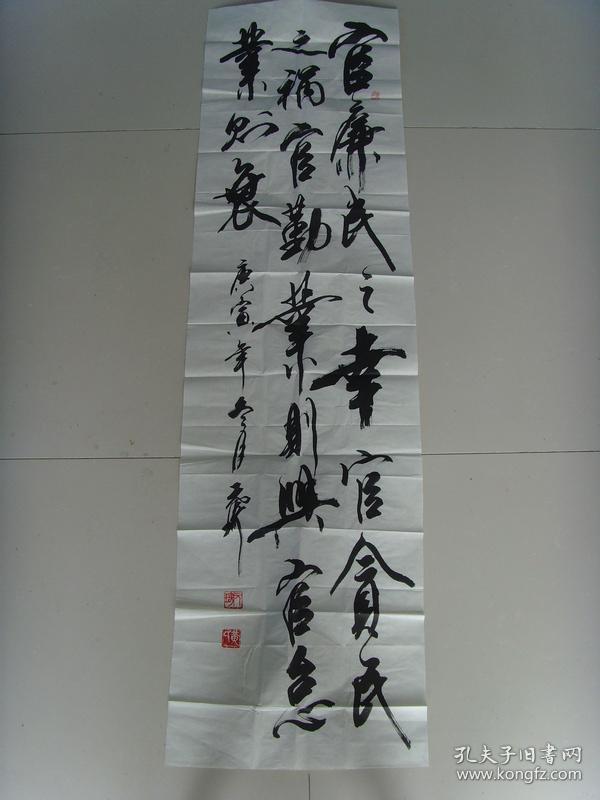 官廉民之幸官贪民
之祸官勤業则興官怠
業则衰
庚寅年冬月
孔夫子旧書网
www.kongfz.com